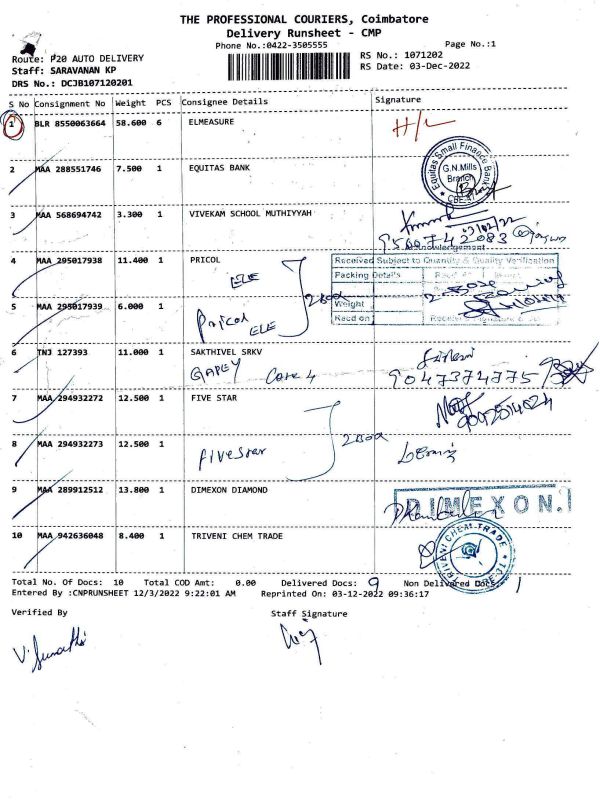 THE PROFESSIONAL COURIERS, Coimbatore
Delivery Runsheet - CMP
Phone No.:0422-3505555
Page No.:1
Route: P20 AUTO DELIVERY
RS No.: 1071202
Staff: SARAVANAN KP
RS Date: 03-Dec-2022
DRS No.: DCJB107120201
S No Consignment No Weight PCS Consignee Details Signature
1 BLR 8550063664 58.600 6 ELMEASURE
2 MAA 288551746 7.500 1 EQUITAS BANK
Equitas Small Finance Bank
G.N.Mills
Branch
CBE
3 MAA 568694742 3.300 1 VIVEKAM SCHOOL MUTHIYYAH
9500742083
Acknowledgement
4 MAA 295017938 11.400 1 PRICOL
ELE
2 Box
Received Subject to Quantity & Quality Verification
Packing Details
Weight
Recd on
5 MAA 295017939 6.000 1
Pricol
ELE
6 TNJ 127393 11.000 1 SAKTHIVEL SRKV
9047374775
7 MAA 294932272 12.500 1 FIVE STAR
2 Box
8 MAA 294932273 12.500 1
fivestar
9 MAA 289912512 13.800 1 DIMEXON DIAMOND
DIMEXON.
10 MAA 942636048 8.400 1 TRIVENI CHEM TRADE
TRIVENI CHEM-TRADE
Total No. Of Docs: 10 Total COD Amt: 0.00 Delivered Docs: 9 Non Delivered Docs: 1
Entered By :CNPRUNSHEET 12/3/2022 9:22:01 AM Reprinted On: 03-12-2022 09:36:17
Verified By
Staff Signature